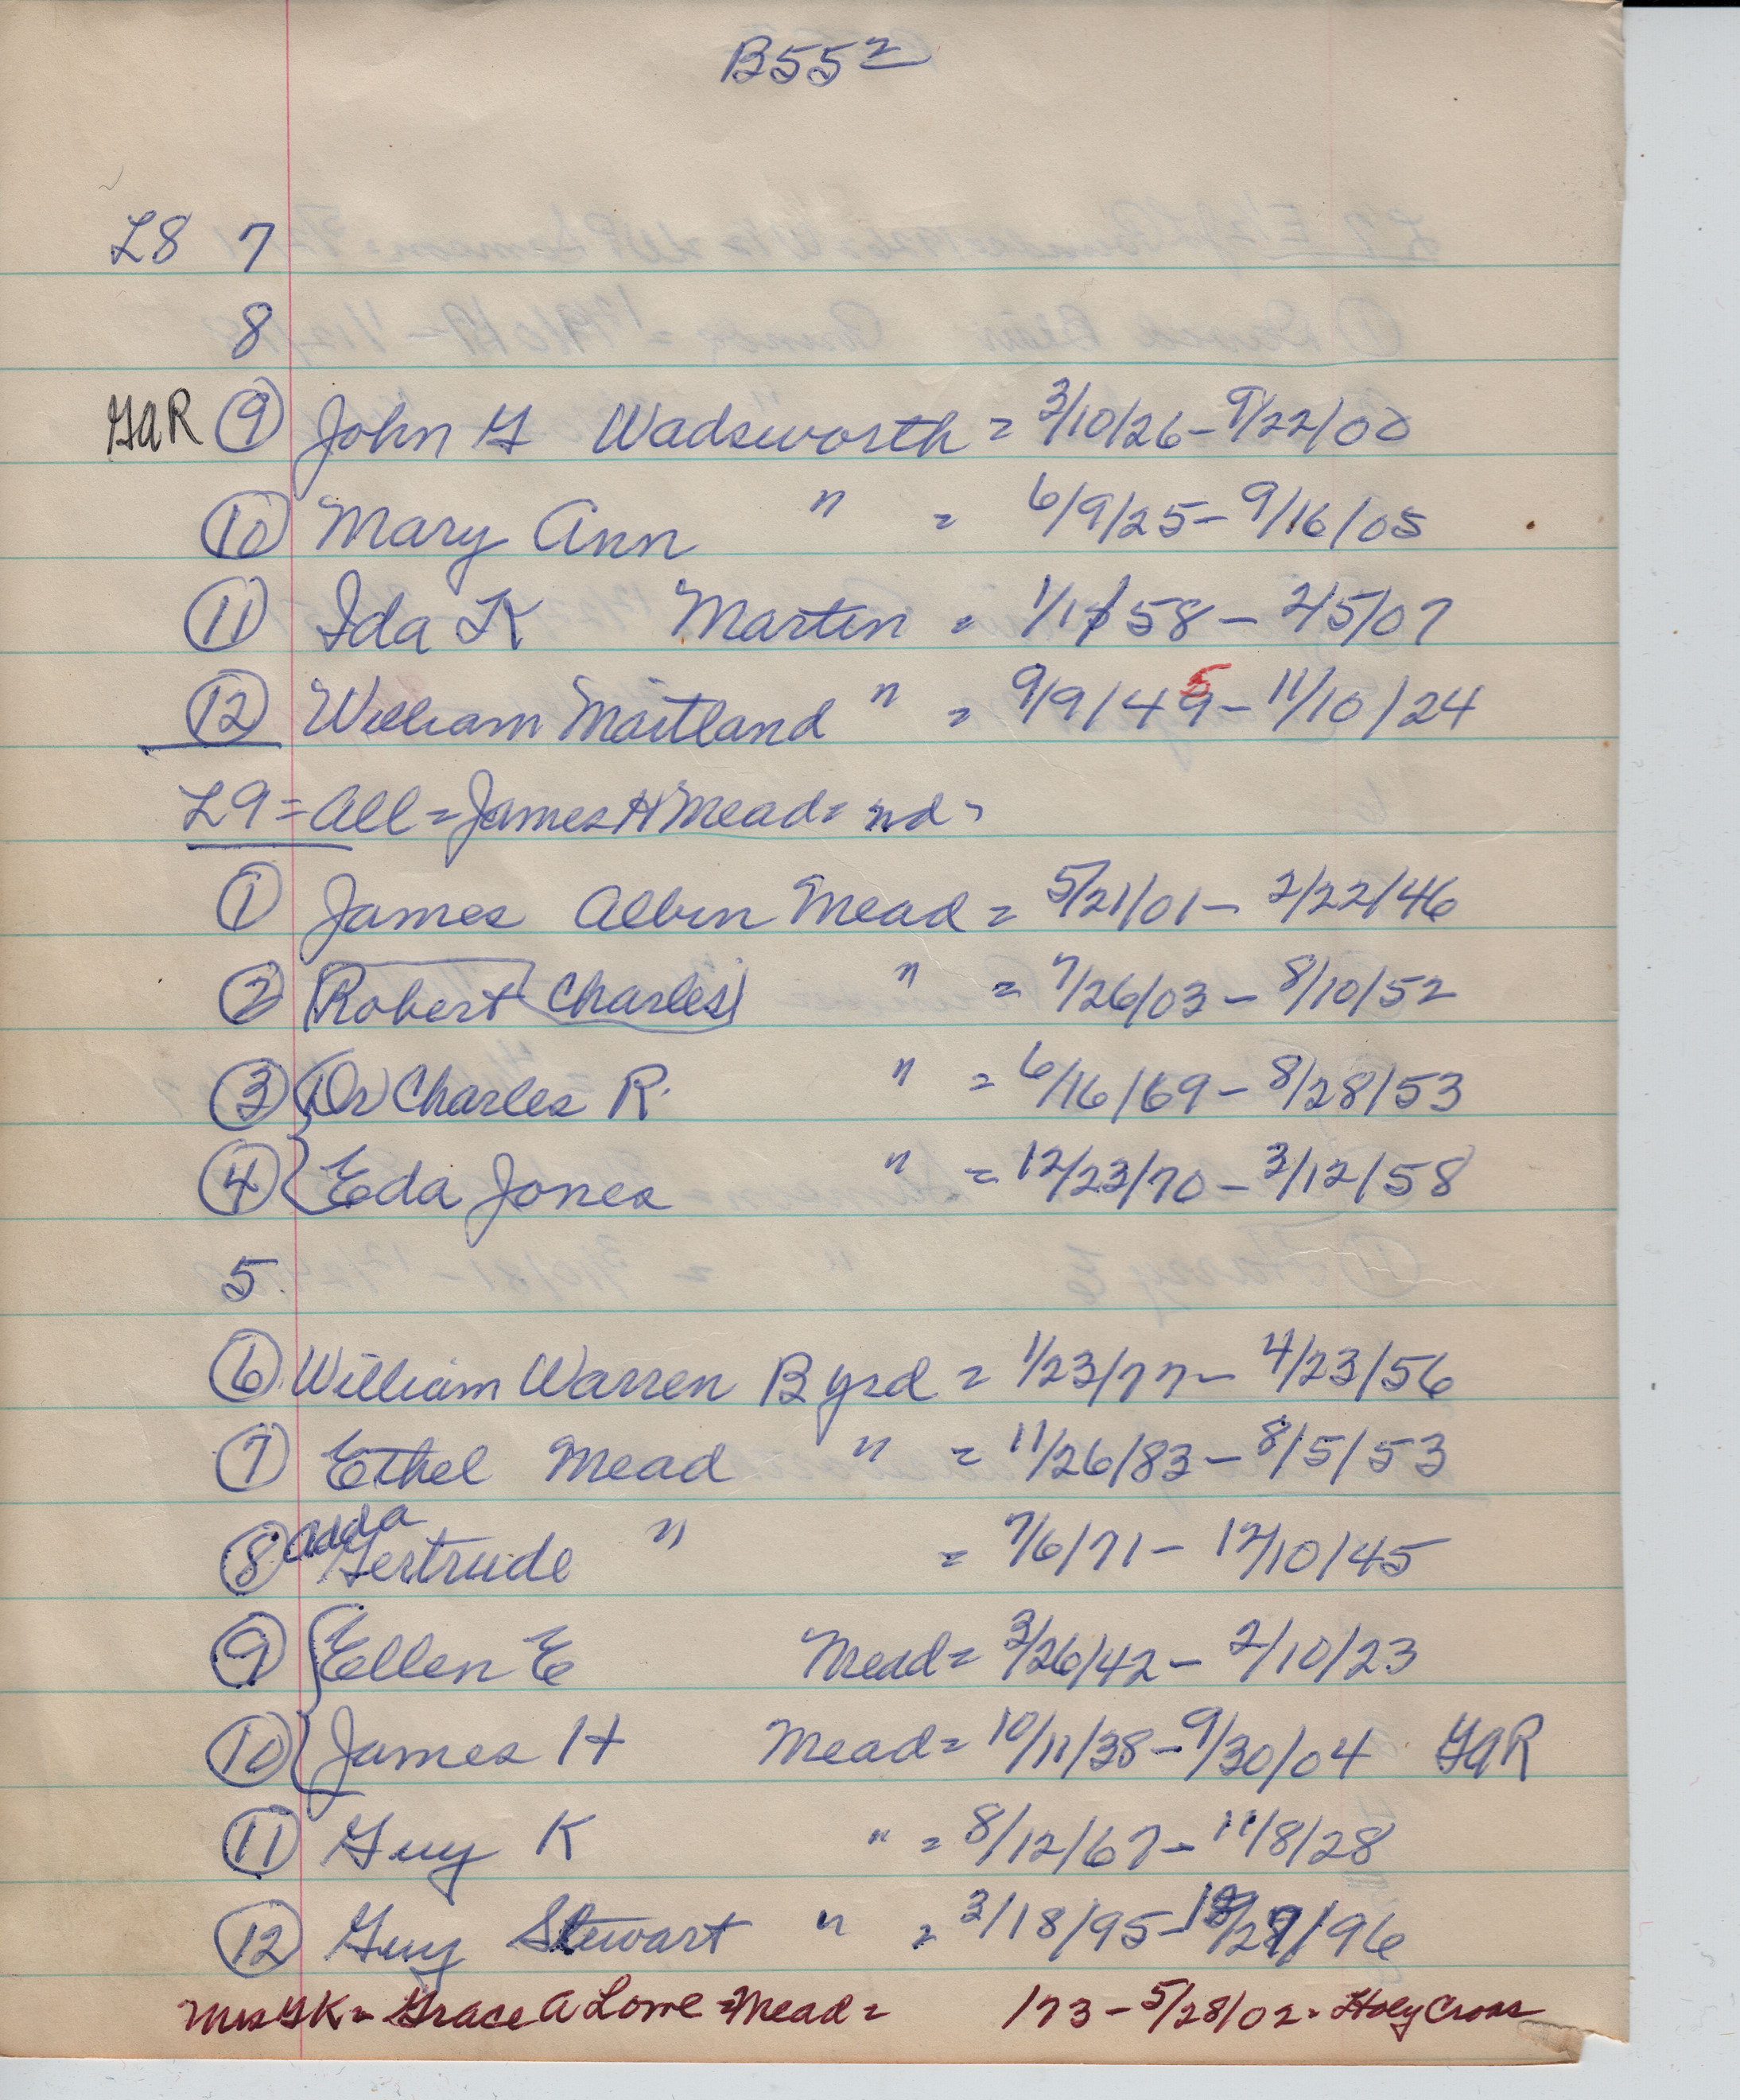 B552
L8 7
8
GAR 9 John G Wadsworth = 3/10/26 - 9/22/00
10 Mary Ann " = 6/9/25 - 9/16/05
11 Ida K Martin = 1/1/58 - 2/5/07
12 William Maitland " = 9/9/49 5 - 11/10/24
L9 = All = James H Mead = nd =
1 James Albin Mead = 5/21/01 - 2/22/46
2 Robert Charles " = 7/26/03 - 8/10/52
3 (Dr) Charles R. " = 6/16/69 - 8/28/53
4 Eda Jones " = 12/23/70 - 3/12/58
5
6 William Warren Byrd = 1/23/77 - 4/23/56
7 Ethel Mead " = 11/26/83 - 8/5/53
8 Adda Gertrude " = 7/6/71 - 12/10/45
9 Ellen E Mead = 3/26/42 - 2/10/23
10 James H Mead = 10/11/38 - 9/30/04 GAR
11 Guy K " = 8/12/67 - 11/8/28
12 Guy Stewart " = 3/18/95 - /96
Mrs GK = Grace A Lowe = Mead = 173 - 5/28/02 = Holy Cross